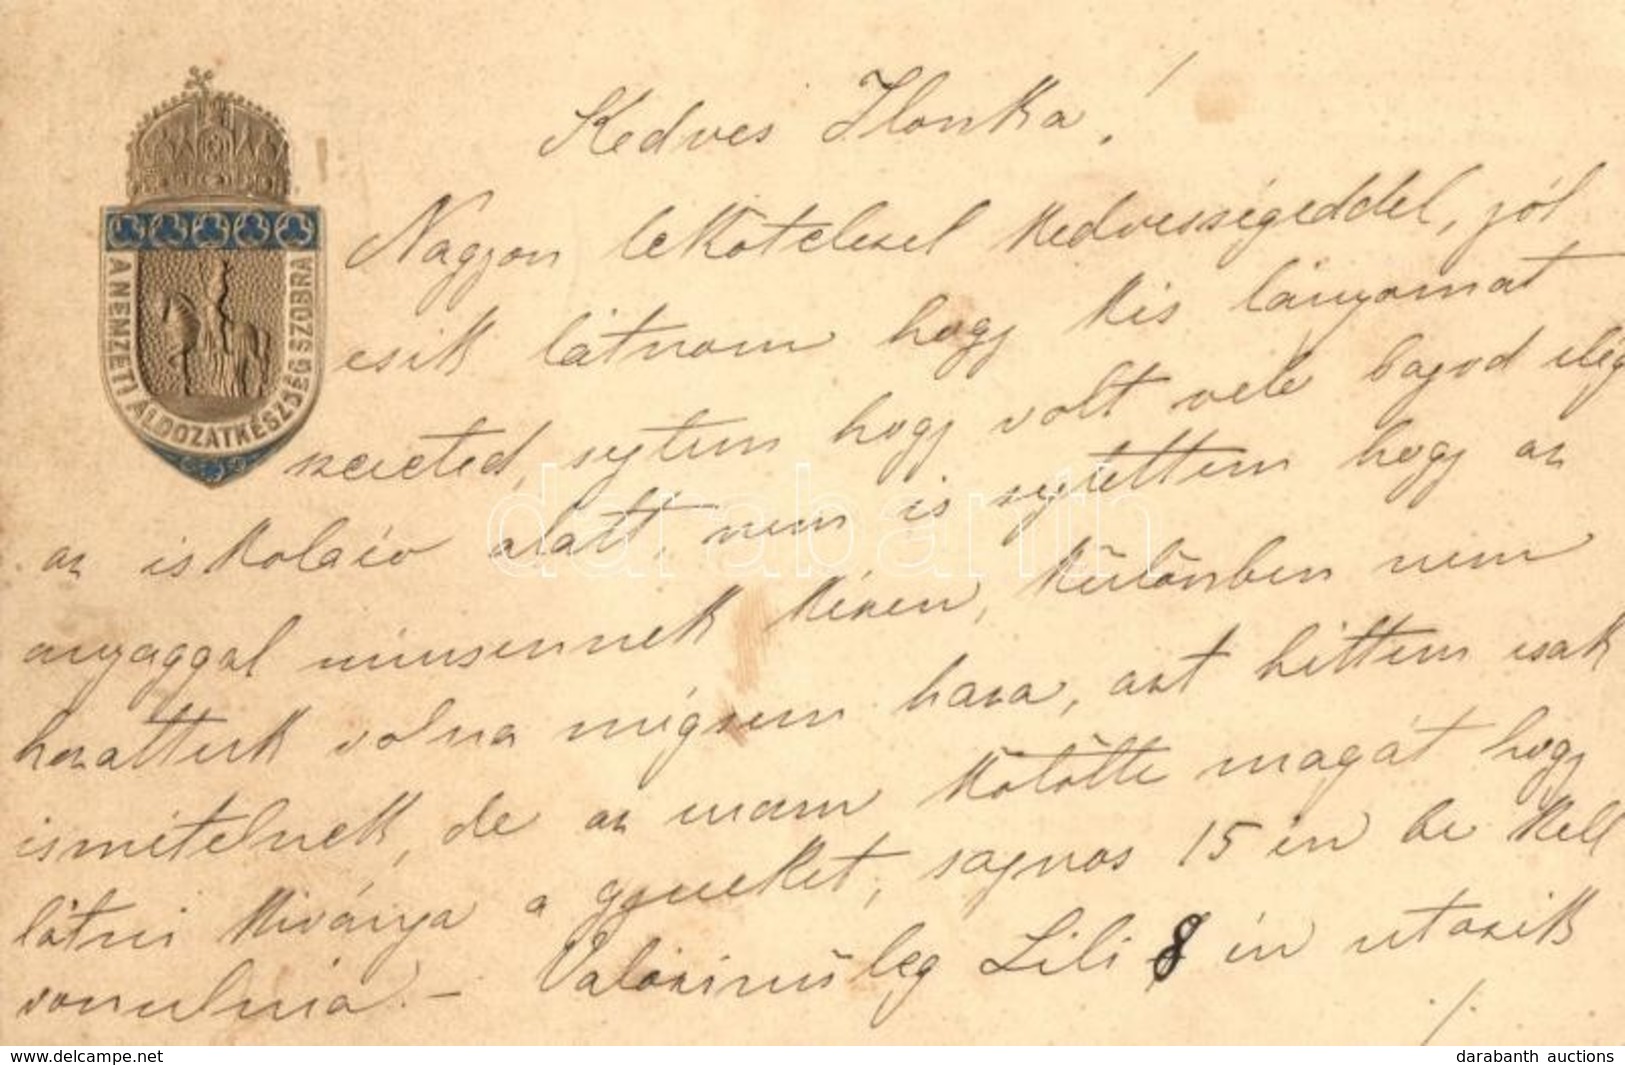 Kedves Ilonka!
Nagyon lekötelezel kedvességeddel, jól
esik látnom hogy kis lányomat
szereted, sejtem hogy volt vele bajod elég
az iskolaév alatt, nem is sejtettem hogy az
anyaggal nincsennek készen, különben nem
hozattuk volna mégsem haza, azt hittem csak
ismételnek, de az uram kötötte magát hogy
látni kivánja a gyereket, sajnos 15 én be kell
vonulnia. – Valószinüleg Lili 8 án utazik
./.
A NEMZETI ÁLDOZATKÉSZSÉG SZOBRA
darabanth
www.delcampe.net
darabanth auctions